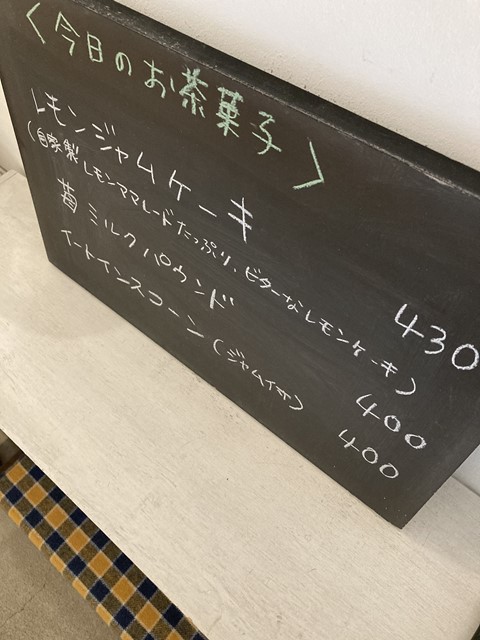 〈今日のお茶菓子〉
レモンジャムケーキ 430
(自家製レモンママレードたっぷり、ビターなレモンケーキ)
苺ミルクパウンド 400
イートインスコーン(ジャム付) 400